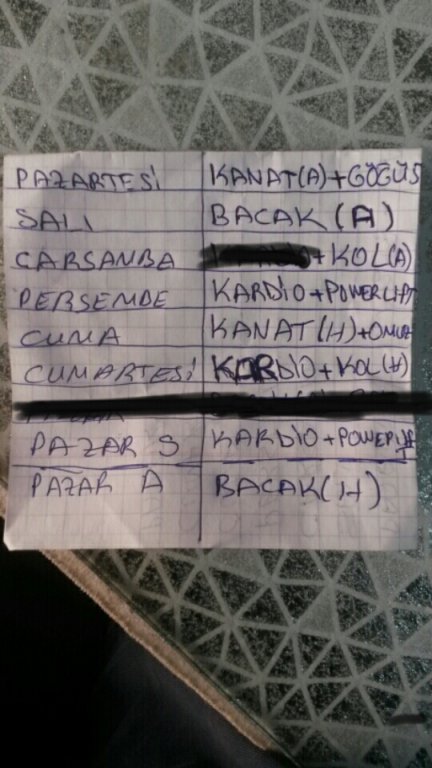 PAZARTESİ KANAT(A)+GÖĞÜS
SALI BACAK (A)
CARSANBA +KOL(A)
PERSEMBE KARDİO+POWERLİFT
CUMA KANAT(H)+OMUZ
CUMARTESİ KARDİO+KOL(H)
PAZAR S KARDİO+POWERLİFT
PAZAR A BACAK(H)